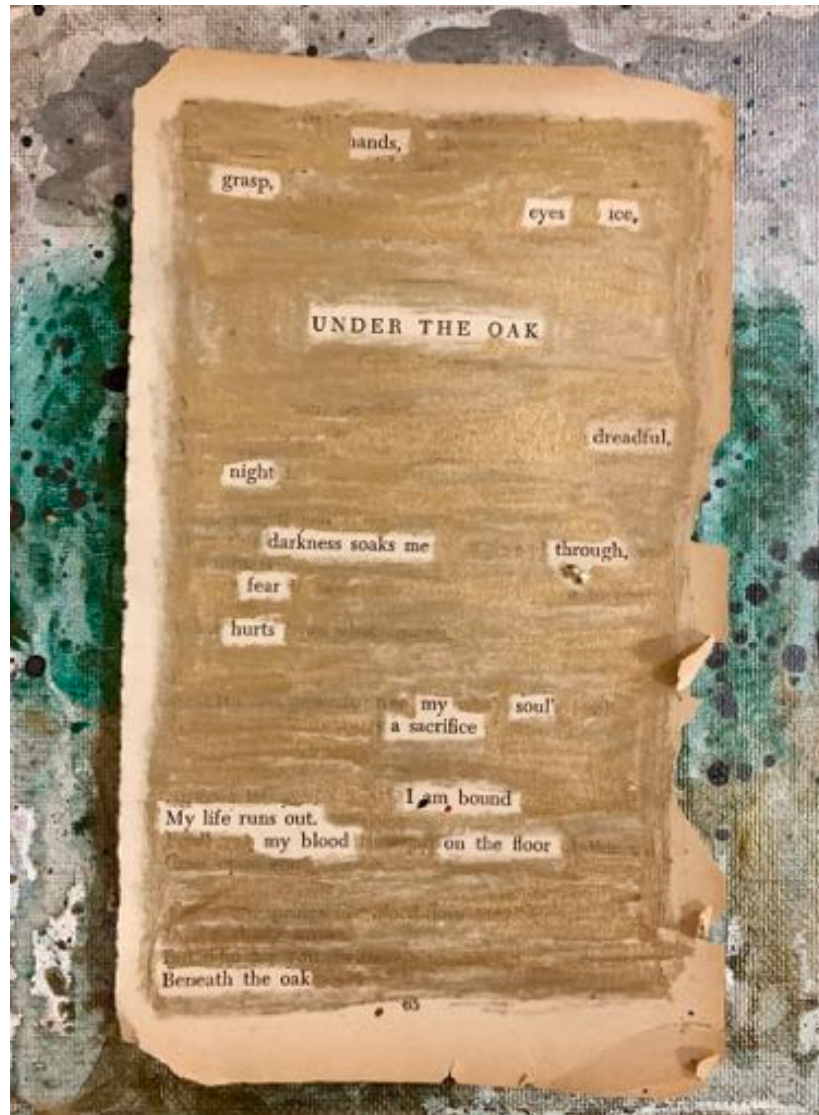 hands,
grasp,
eyes ice,
UNDER THE OAK
dreadful,
night
darkness soaks me through,
fear
hurts
my soul'
a sacrifice
I am bound
My life runs out.
my blood on the floor
Beneath the oak
65